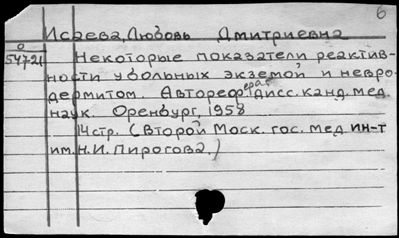 6
Исаева, Любовь Дмитриевна
0
54721
Некоторые показатели реактив-
ности у больных экземой и невро-
дермитом. Автореферат дисс. канд. мед.
наук. Оренбург, 1958
14 стр. (Второй Моск. гос. мед ин-т
им. Н. И. Пирогова.)